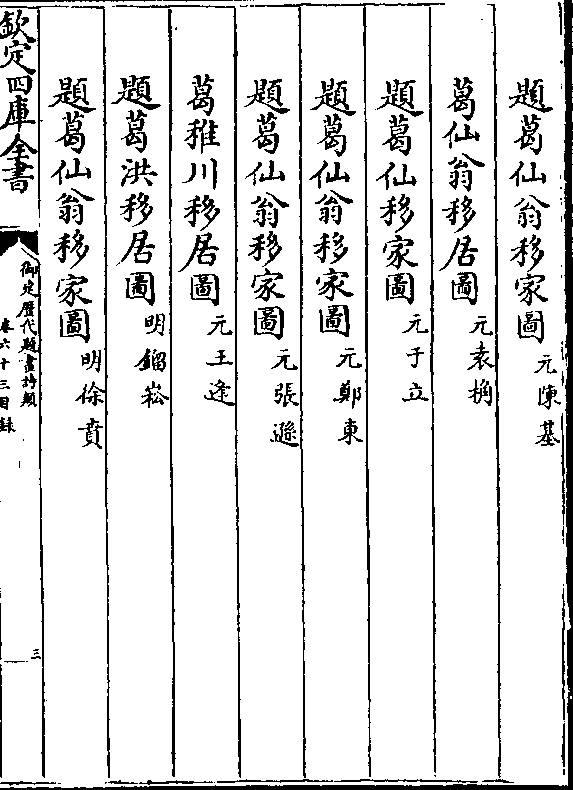 題葛仙翁移家圖 元陳基
葛仙翁移居圖 元袁桷
題葛仙移家圖 元于立
題葛仙翁移家圖 元鄭東
題葛仙翁移家圖 元張遜
葛稚川移居圖 元王逢
題葛洪移居圖 明鎦崧
題葛仙翁移家圖 明徐賁
欽定四庫全書
御定歷代題畫詩類
卷六十三目錄
三